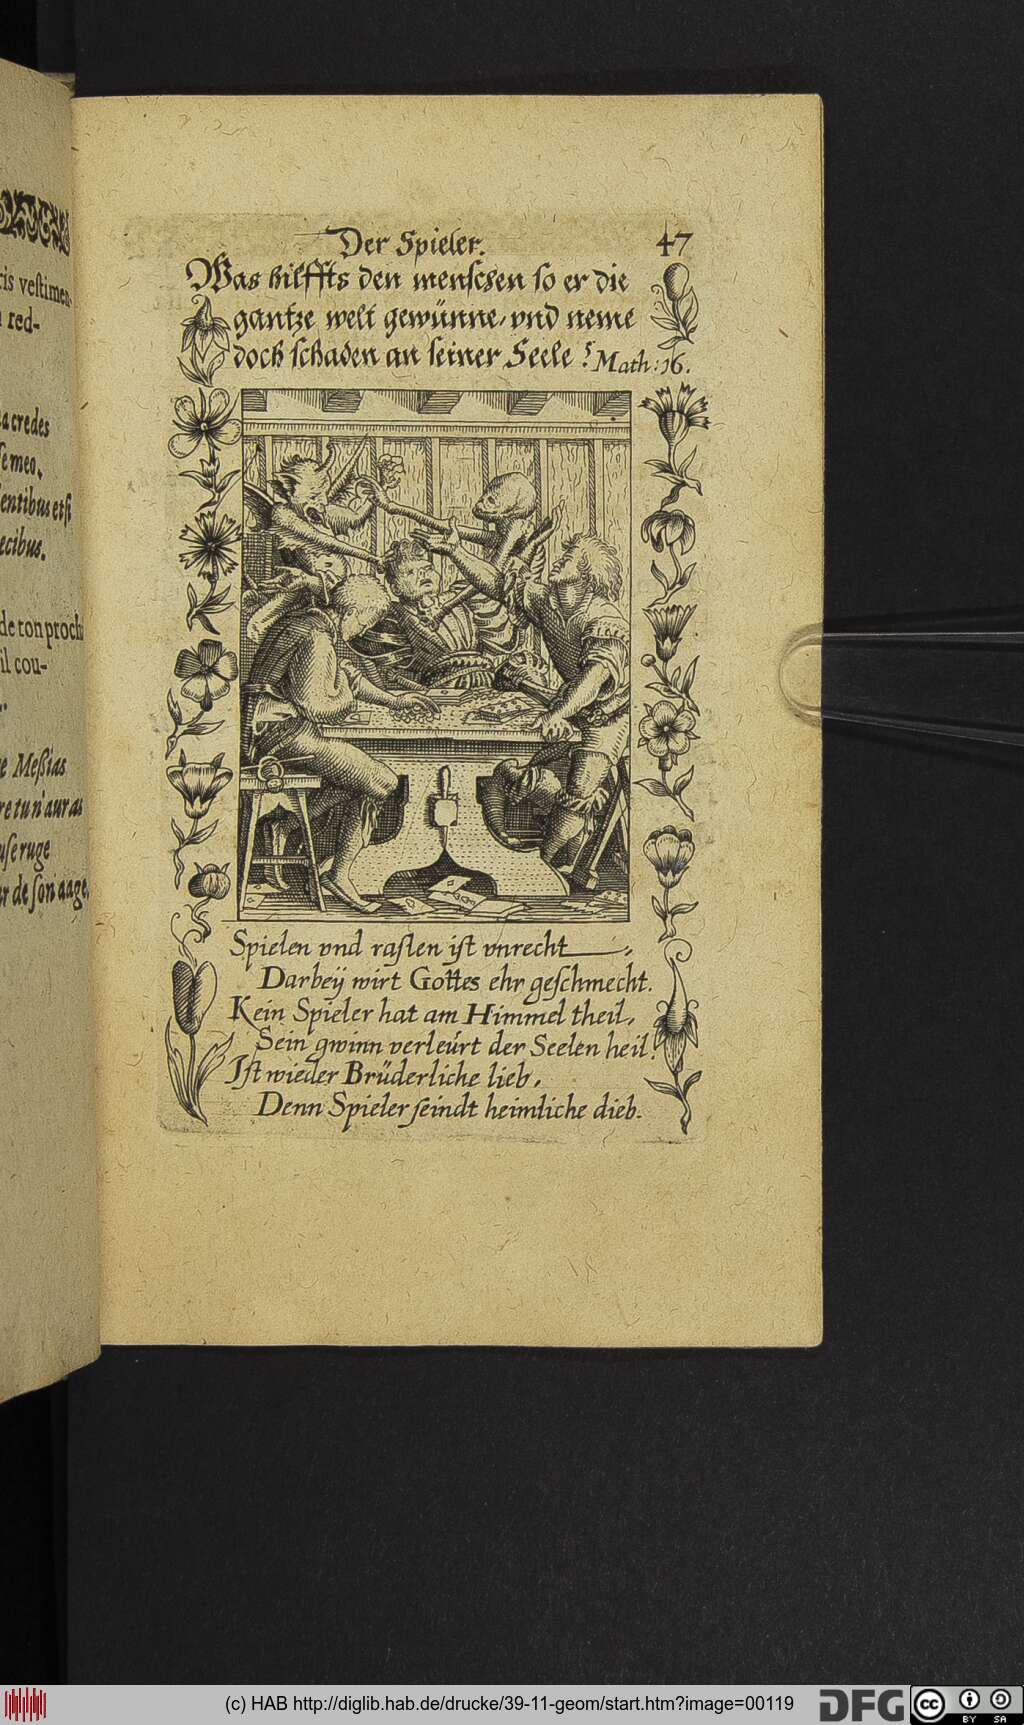 cis vestimen-
red-
a credes
se meo.
entibus etsi
ecibus.
de ton procha
il cou-
e Meßias
re tu n'auras
use ruge
ur de son aage.
Der Spieler. 47
Was hilffts den menschen so er die
gantze welt gewünne, vnd neme
doch schaden an seiner Seele? Math: 16.
Spielen vnd raslen ist vnrecht,
Darbeÿ wirt Gottes ehr geschmecht.
Kein Spieler hat am Himmel theil,
Sein gwinn verleurt der Seelen heil!
Ist wieder Brüderliche lieb,
Denn Spieler seindt heimliche dieb.
(c) HAB http://diglib.hab.de/drucke/39-11-geom/start.htm?image=00119
DFG
cc BY SA